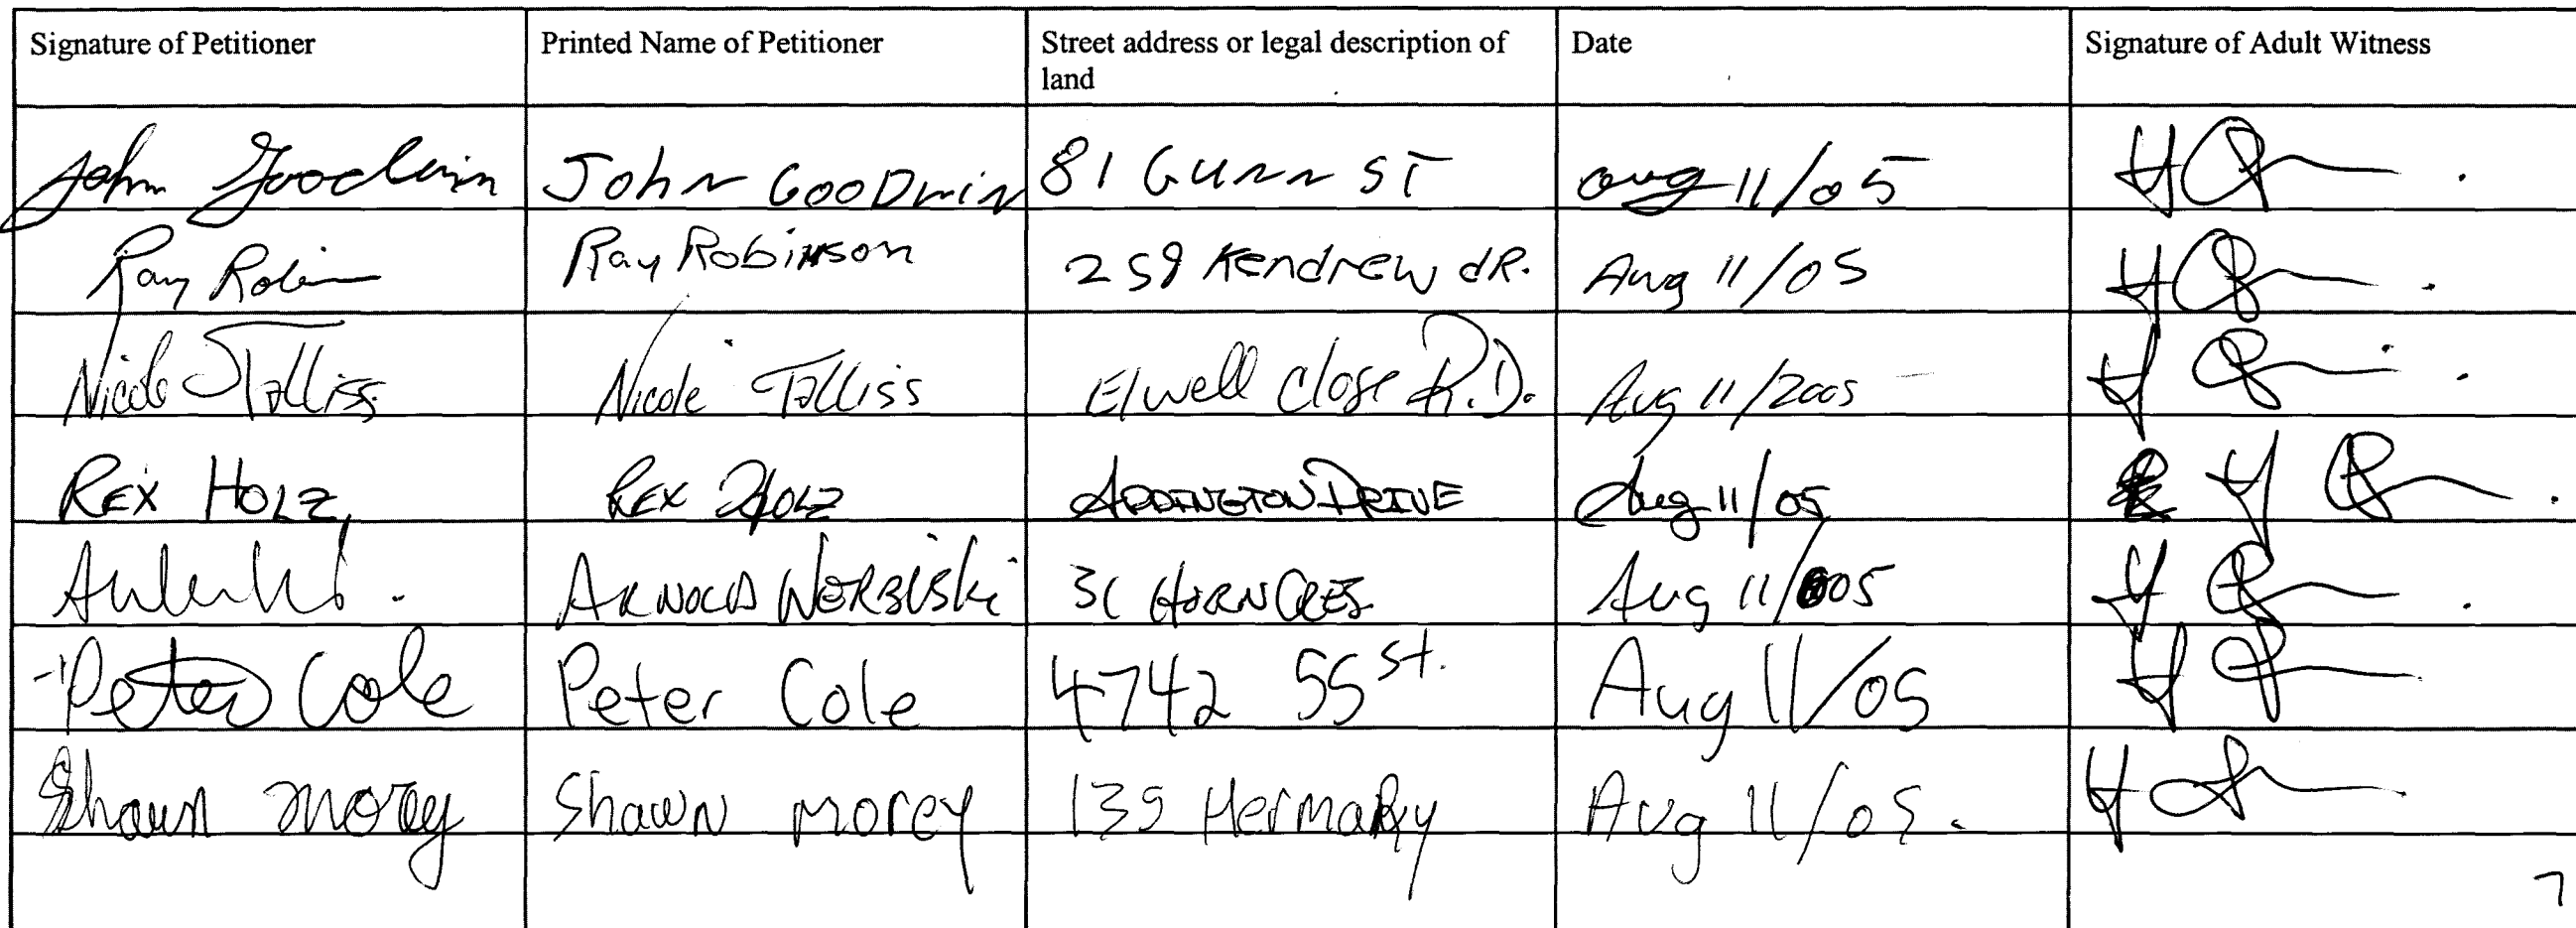 Signature of Petitioner Printed Name of Petitioner Street address or legal description of land Date Signature of Adult Witness
John Goodwin John GOODWIN 81 GUNN ST aug 11/05
Ray Robin Ray Robinson 259 Kendrew dR. Aug 11/05
Nicole Talliss Nicole Talliss Elwell Close R.D. Aug 11/2005
REX HOLZ REX HOLZ ADDINGTON DRIVE Aug 11/05
ARNOLD WERBISKi 31 HORN CRES. Aug 11/05
Peter Cole Peter Cole 4742 55 St. Aug 11/05
Shawn morey Shawn morey 139 HermaRy Aug 11/05.
7